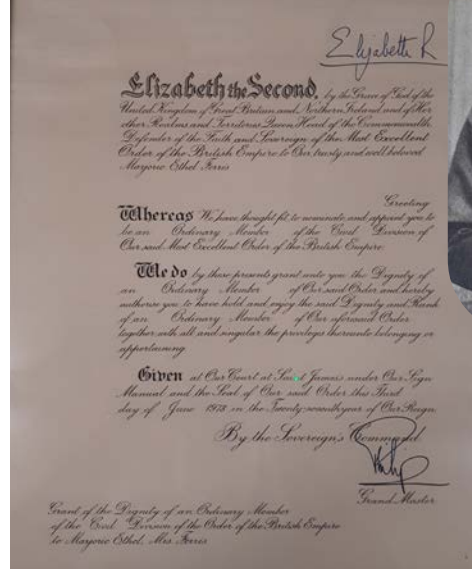 Elizabeth R
Elizabeth the Second, by the Grace of God of the
United Kingdom of Great Britain and Northern Ireland and of Her
other Realms and Territories Queen, Head of the Commonwealth,
Defender of the Faith and Sovereign of the Most Excellent
Order of the British Empire to Our trusty and well beloved
Marjorie Ethel Ferris
Greeting
Whereas We have thought fit to nominate and appoint you to
be an Ordinary Member of the Civil Division of
Our said Most Excellent Order of the British Empire
We do by these presents grant unto you the Dignity of
an Ordinary Member of Our said Order and hereby
authorise you to have hold and enjoy the said Dignity and Rank
of an Ordinary Member of Our aforesaid Order
together with all and singular the privileges thereunto belonging or
appertaining
Given at Our Court at Saint James's under Our Sign
Manual and the Seal of Our said Order this Third
day of June 1978 in the Twenty-seventh year of Our Reign
By the Sovereign's Command
Philip
Grand Master
Grant of the Dignity of an Ordinary Member
of the Civil Division of the Order of the British Empire
to Marjorie Ethel, Mrs Ferris